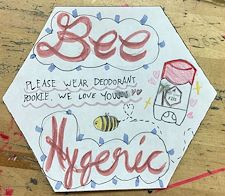 Bee
PLEASE WEAR DEODORANT,
POOKIE, WE LOVE YOU!
Hygenic